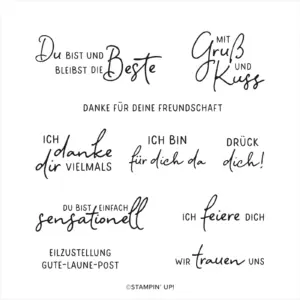 Du BIST UND
BLEIBST DIE Beste
MIT
Gruß
UND
Kuss
DANKE FÜR DEINE FREUNDSCHAFT
ICH danke
dir VIELMALS
ICH BIN
für dich da
DRÜCK
dich!
DU BIST EINFACH
sensationell
ICH feiere DICH
EILZUSTELLUNG
GUTE-LAUNE-POST
WIR trauen UNS
©STAMPIN' UP!